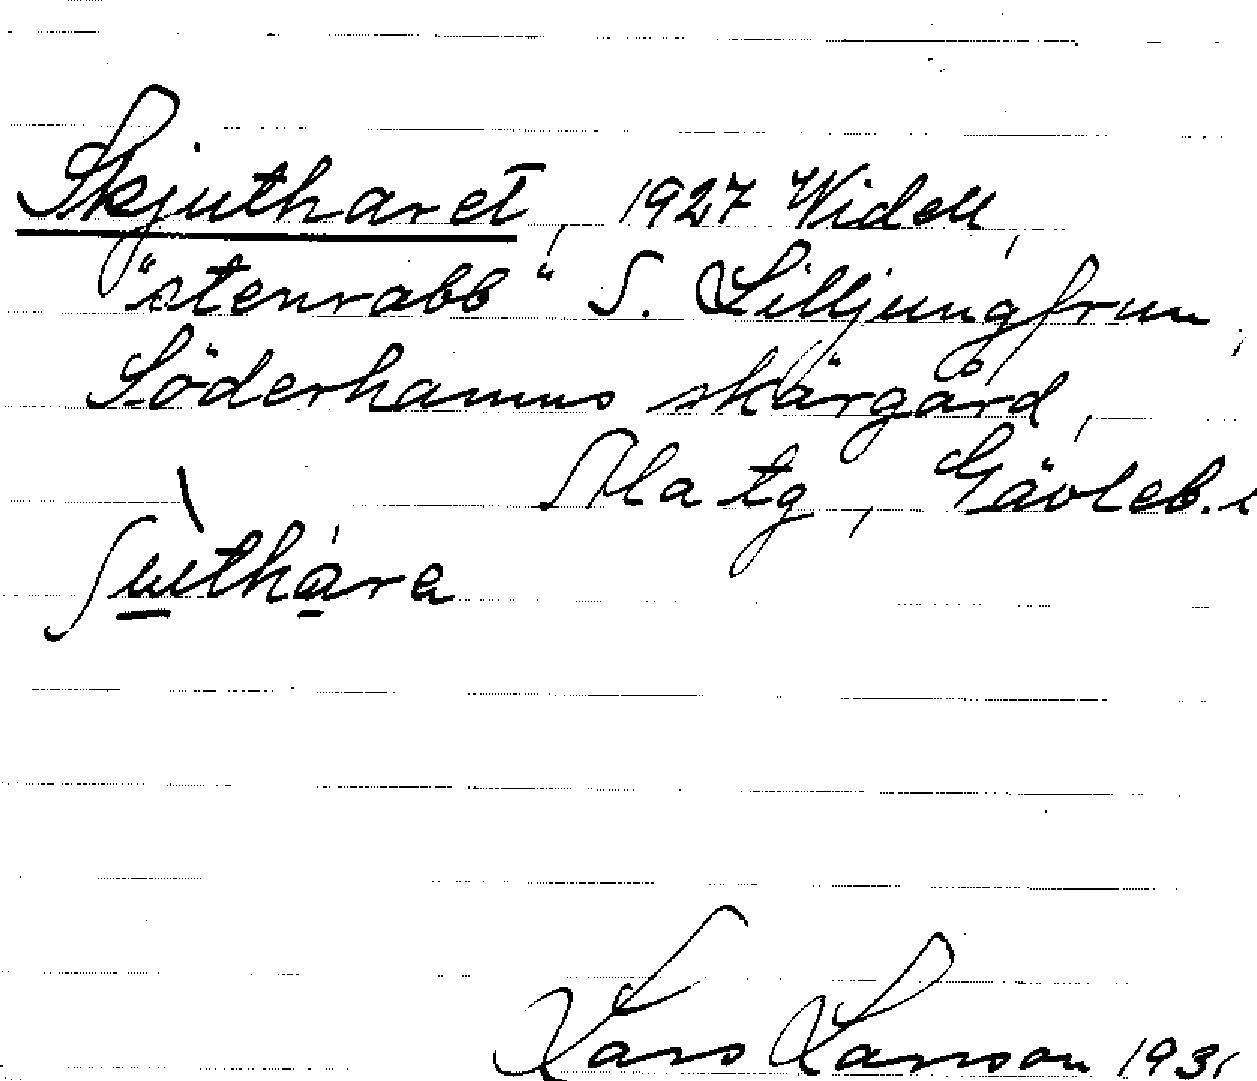 Skjutharet, 1927 Widell,
"stenrabb" S. Lilljungfrun,
Söderhamns skärgård,
Ala tg, Gävleb.
Lars Larsson 1931